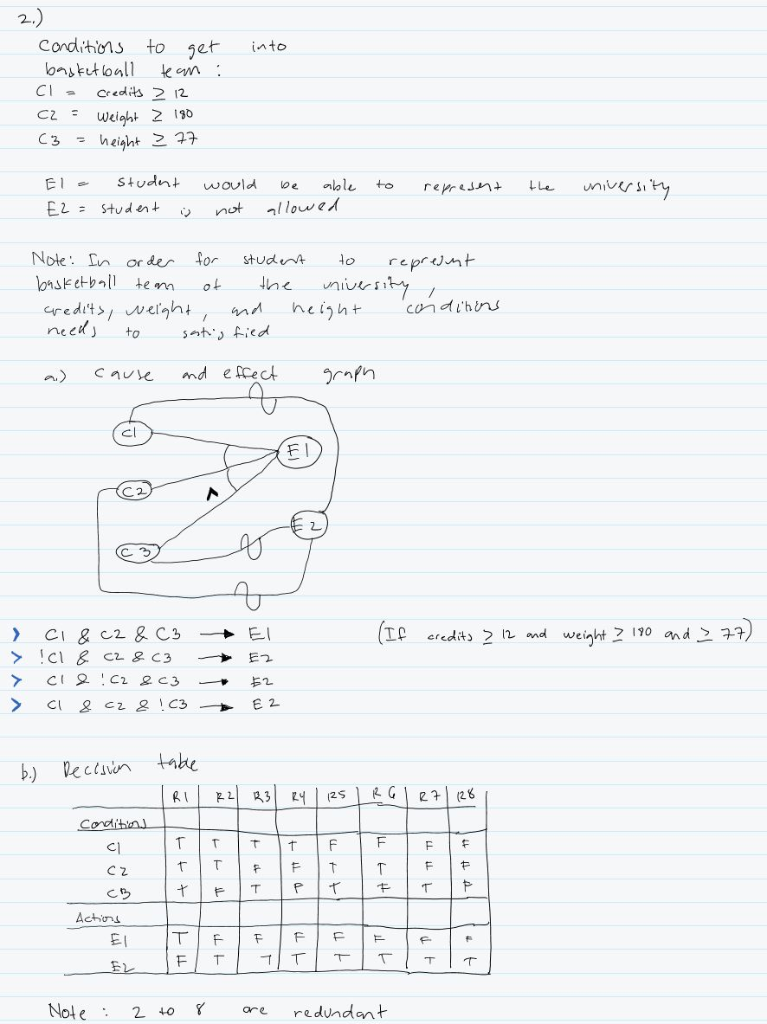 2.)
Conditions to get into
basketball team :
C1 = credits ≥ 12
C2 = weight ≥ 180
C3 = height ≥ 77
E1 = student would be able to represent the university
E2 = student is not allowed
Note: In order for student to represent
basketball team of the university,
credits, weight, and height conditions
needs to satisfied
a.) cause and effect graph
C1
E1
C2
^
E2
C3
C1 & C2 & C3 → E1 (If credits ≥ 12 and weight ≥ 180 and ≥ 77)
!C1 & C2 & C3 → E2
C1 & !C2 & C3 → E2
C1 & C2 & !C3 → E2
b.) Decision table
R1 R2 R3 R4 R5 R6 R7 R8
Conditions
C1 T T T T F F F F
C2 T T F F T T F F
C3 T F T F T F T F
Actions
E1 T F F F F F F F
E2 F T T T T T T T
Note : 2 to 8 are redundant